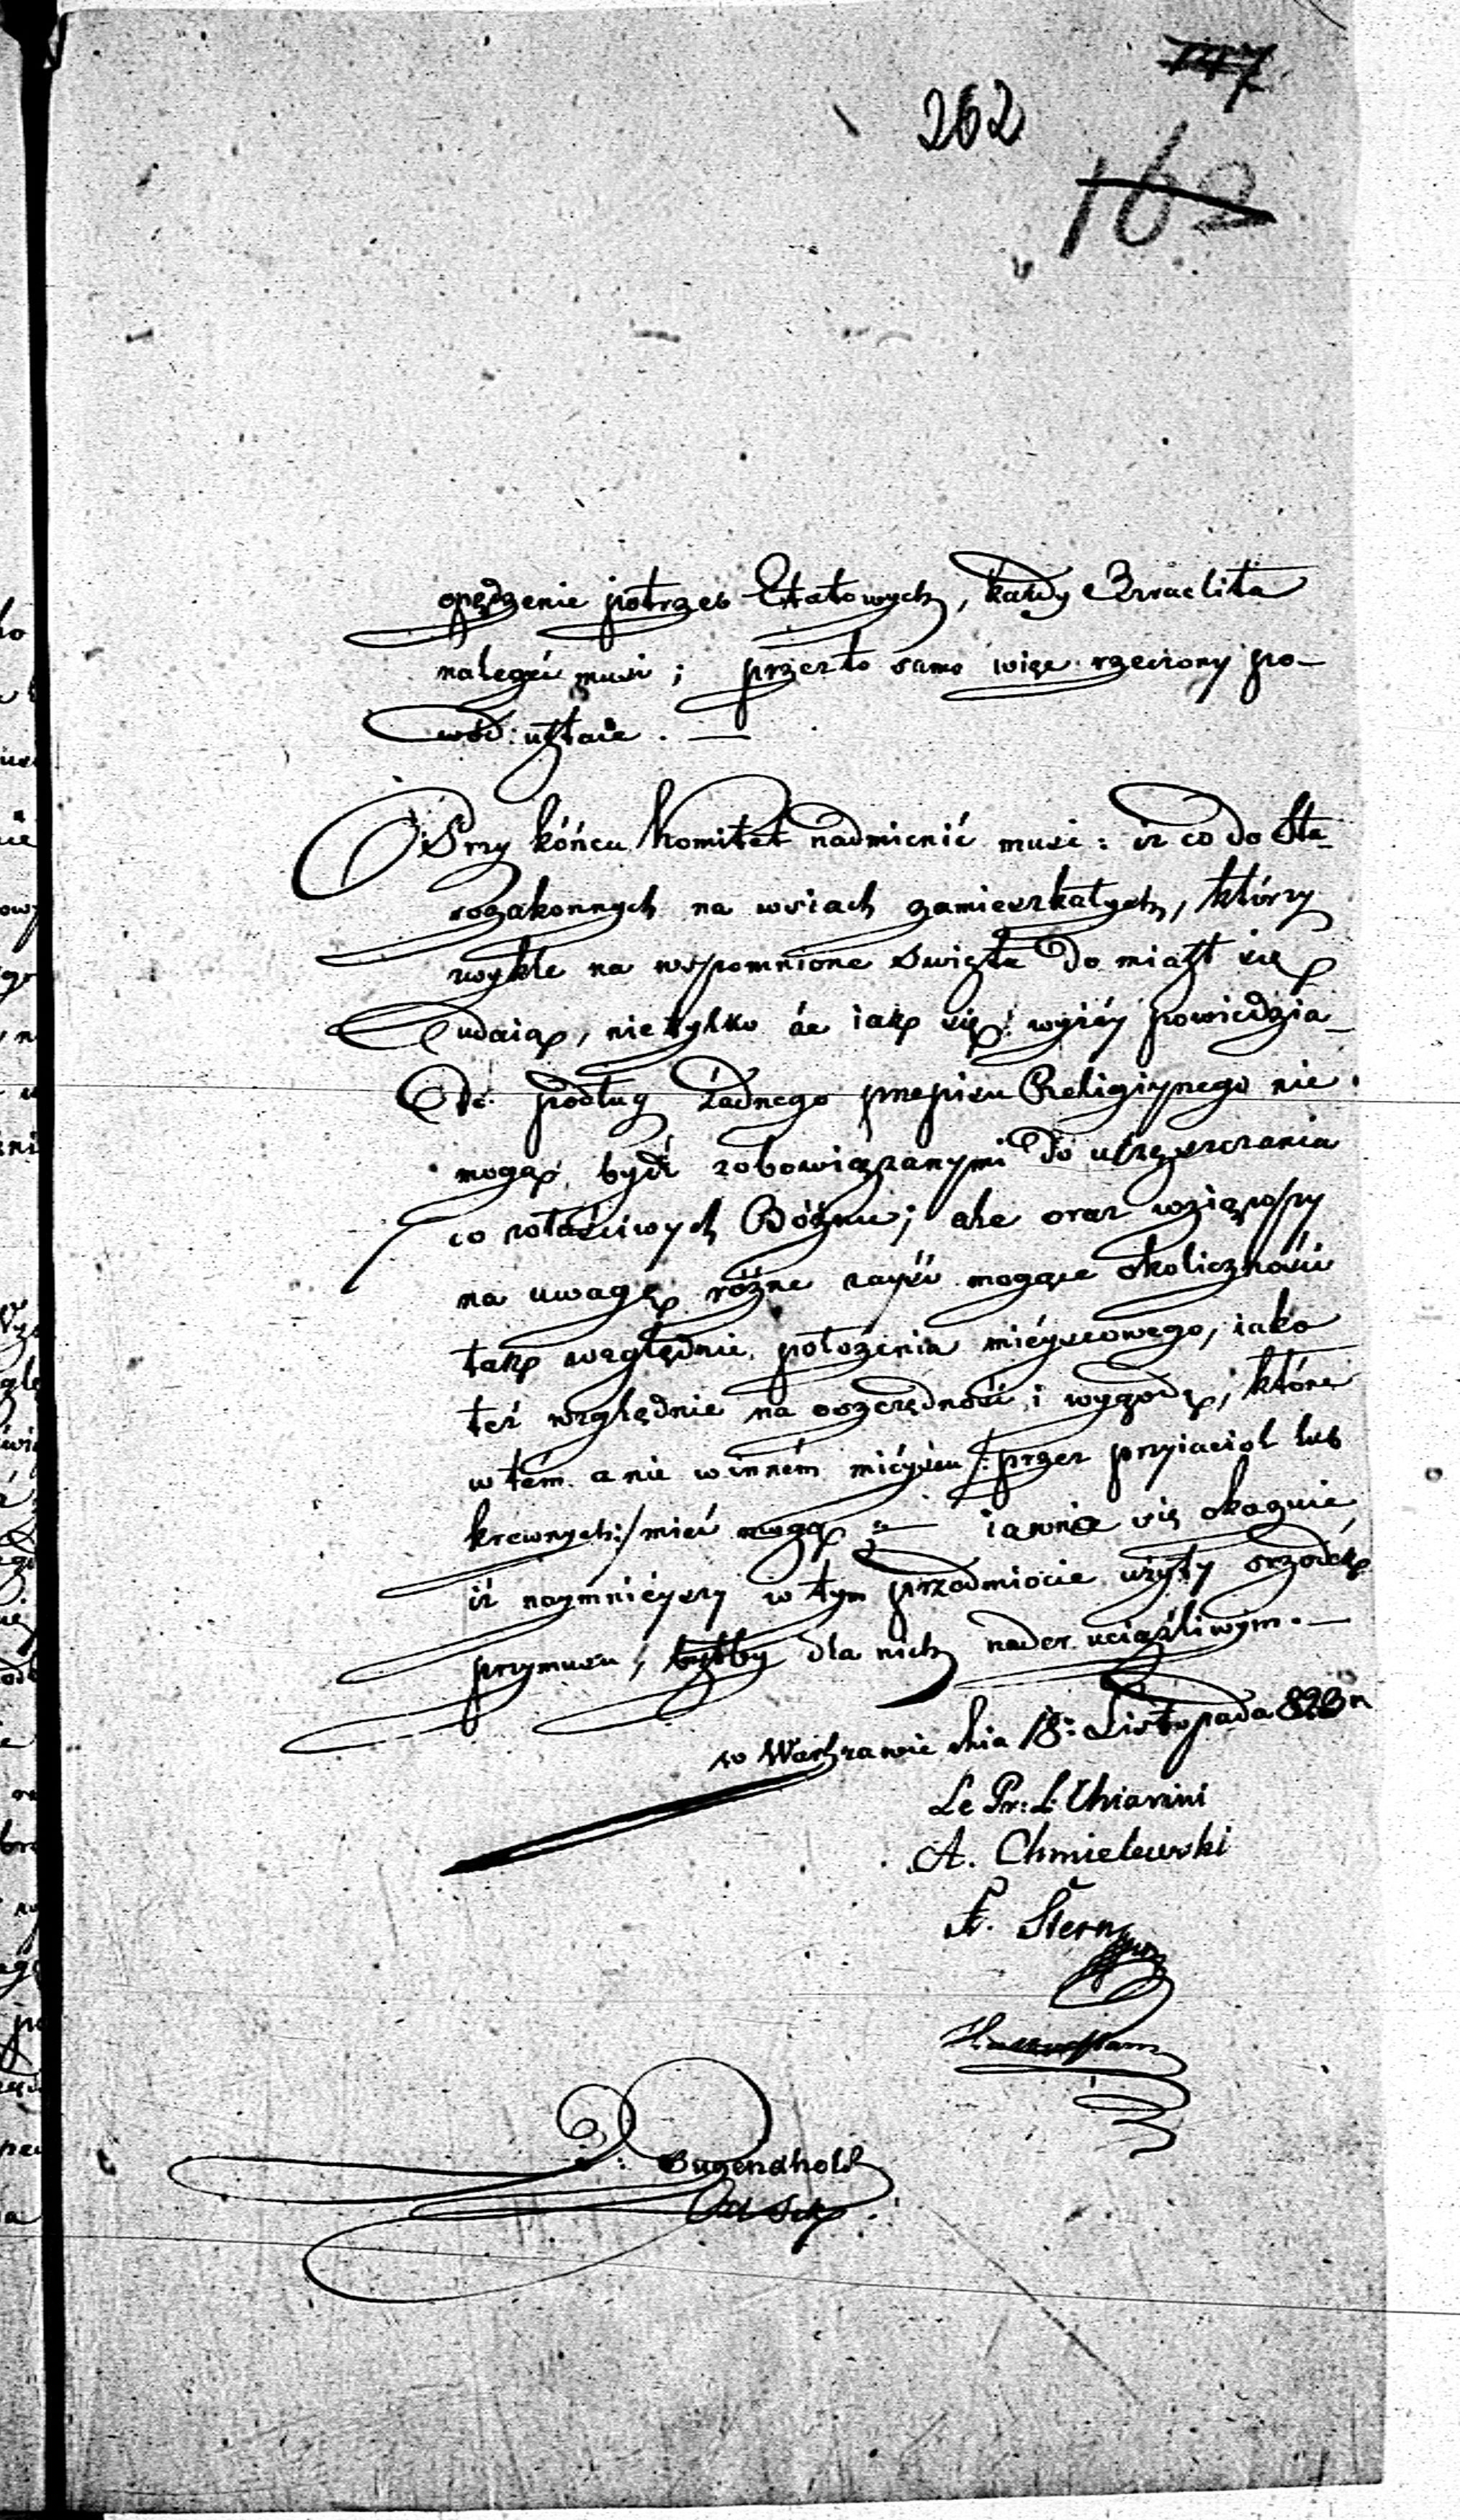 747
262
162
opędzenie potrzeb Etatowych, każdy Izraelita
należeć musi; przez to samo więc rzeczony po-
wód ustaie. —
Przy końcu Komitet nadmienić musi: iż co do Sta-
rozakonnych na wsiach zamieszkałych, którzy
zwykle na wspomnione Święta do miast się
udaią, nie tylko że iak się wyżéy powiedzia-
ło: podług żadnego przepisu Religiynego nie
mogą bydź zobowiązanymi do uczęszczania
co właściwych Bóżnic; ale oraz wziąwszy
na uwagę różne zayść mogące okoliczności
tak względnie położenia mieyscowego, iako
też względnie na oszczędność i wygodę, które
w tém a nie w inném mieyscu /: przez przyiaciół lub
krewnych :/ mieć mogą — iawnie się okazuie,
iż naymnieyszy w tym przedmiocie użyty srzodek
przymusu, byłby dla nich nader uciążliwym. —
w Warszawie dnia 18: Listopada 828 r
Le Pr: L: Chiarini
A. Chmielewski
A. Stern
J: Tugendhold